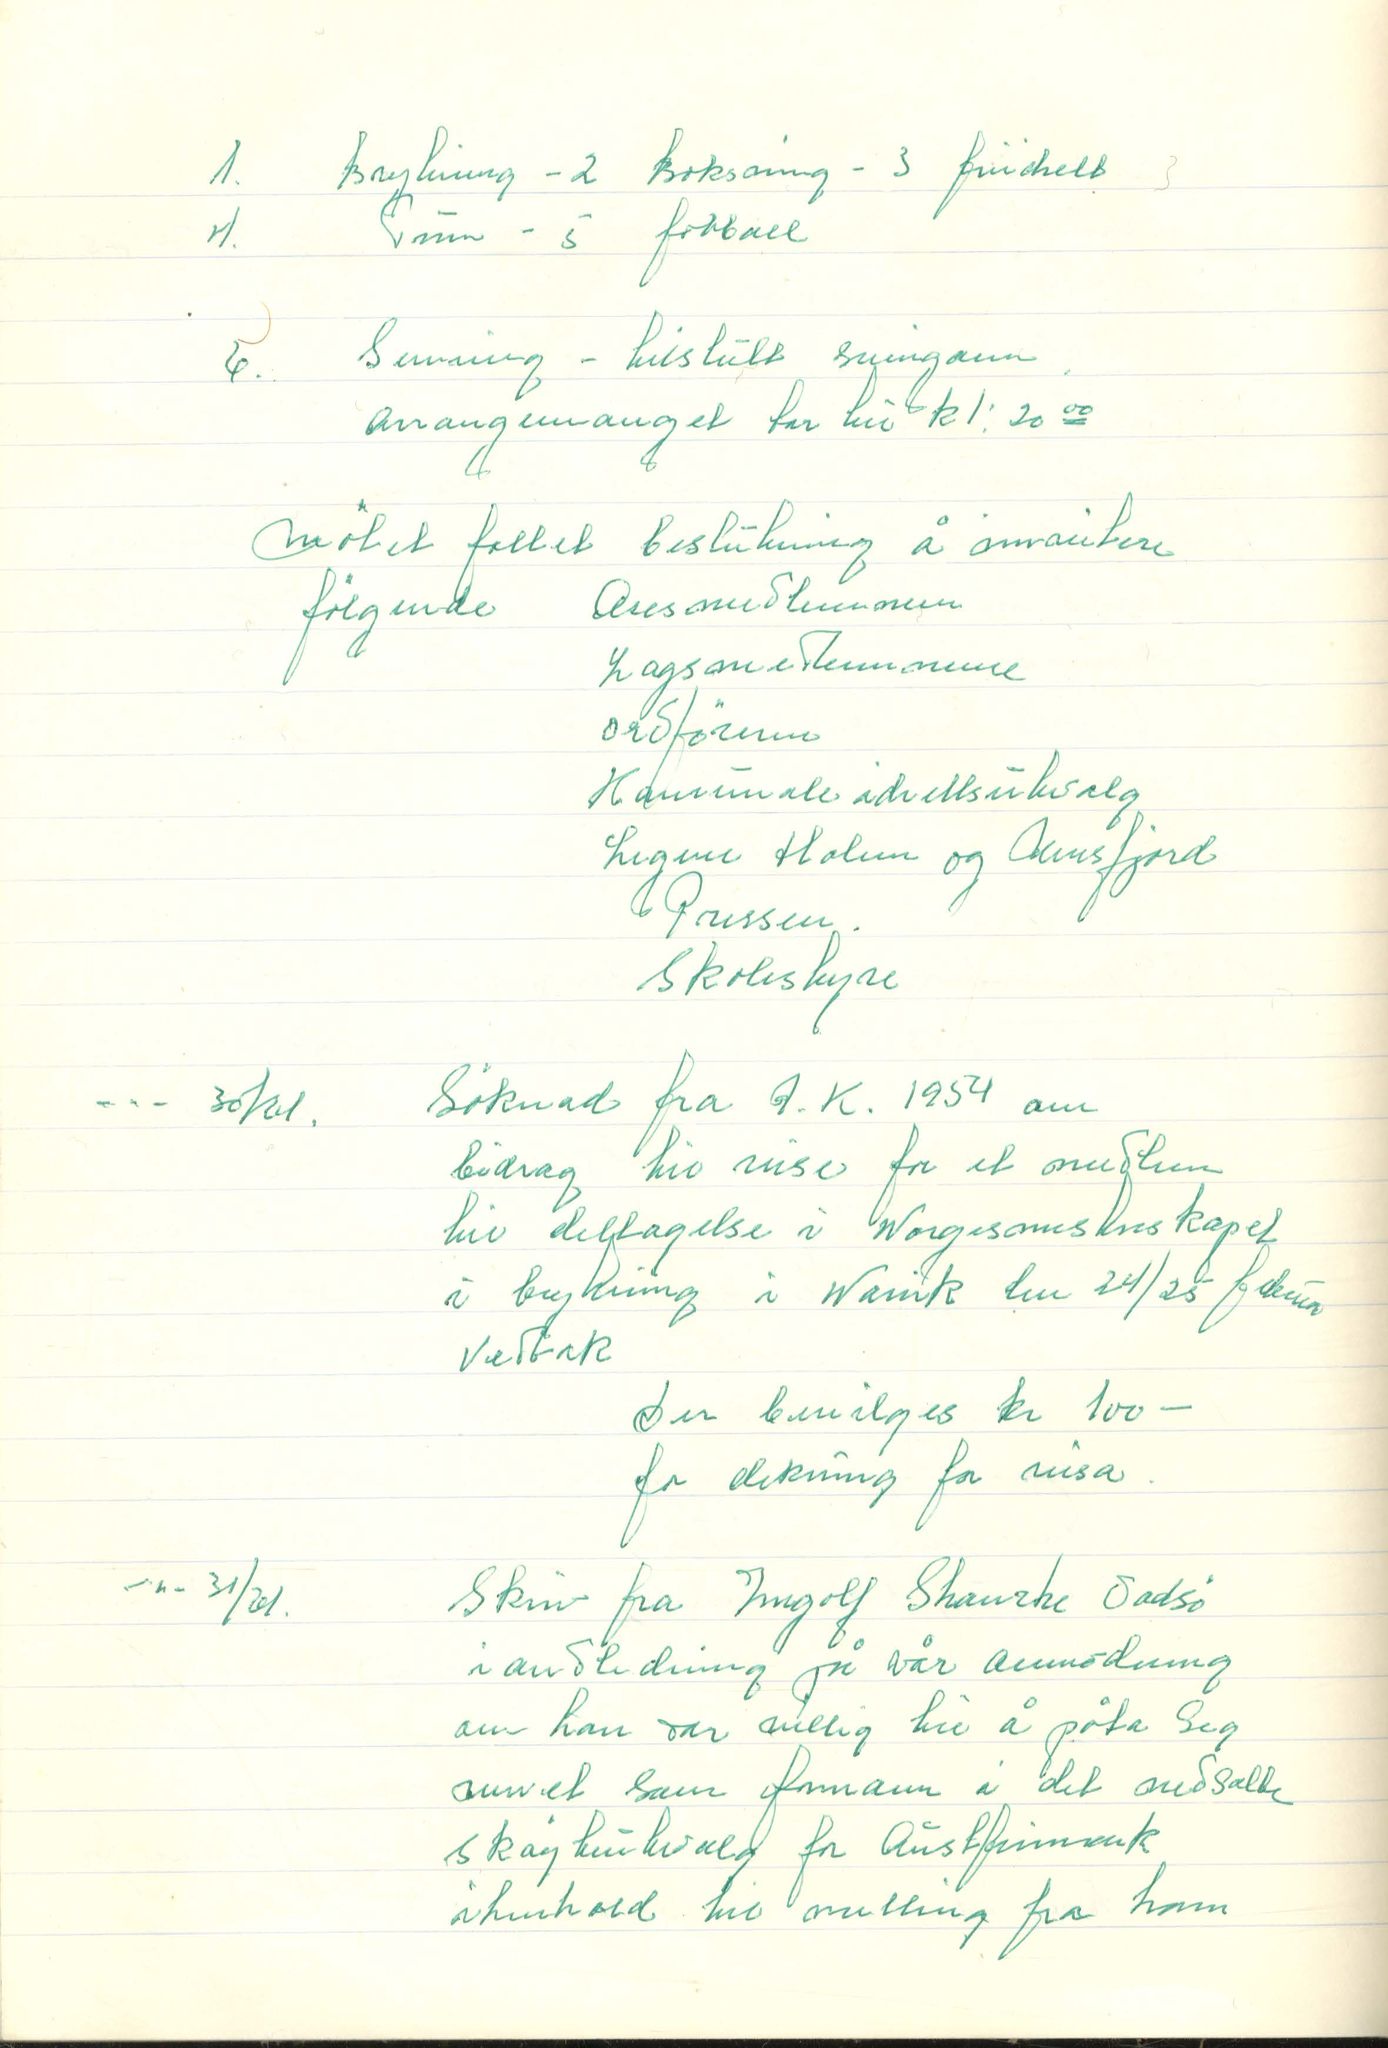 1. Bryting - 2 Boksing - 3 friidrett
4. Turn - 5 fotball
6. Servering - tilslutt svingom
Arrangemanget tar til kl: 20 00
Møtet fattet beslutning å invitere
følgende Æresmedlemmene
Lagsmedlemmene
ordføreren
Kommunale idrettsutvalg
Legene Holum og
Pressen.
Skolestyre
--- 30/61. Söknad fra A.K. 1954 om
bidrag til reise for et medlem
til deltagelse i Norgesmesterskapet
i bryting i Narvik den 24/25 februar
Vedtak
Der bevilges kr 100 -
for dekning for reisa.
-"- 31/61. Skriv fra Ingolf Vadsö
i andledning på vår anmodning
om han var villig til å påta seg
vervet som formann i det nedsatte
skøyteutvalg for Austfinnmark
ihenhold til melling fra ham